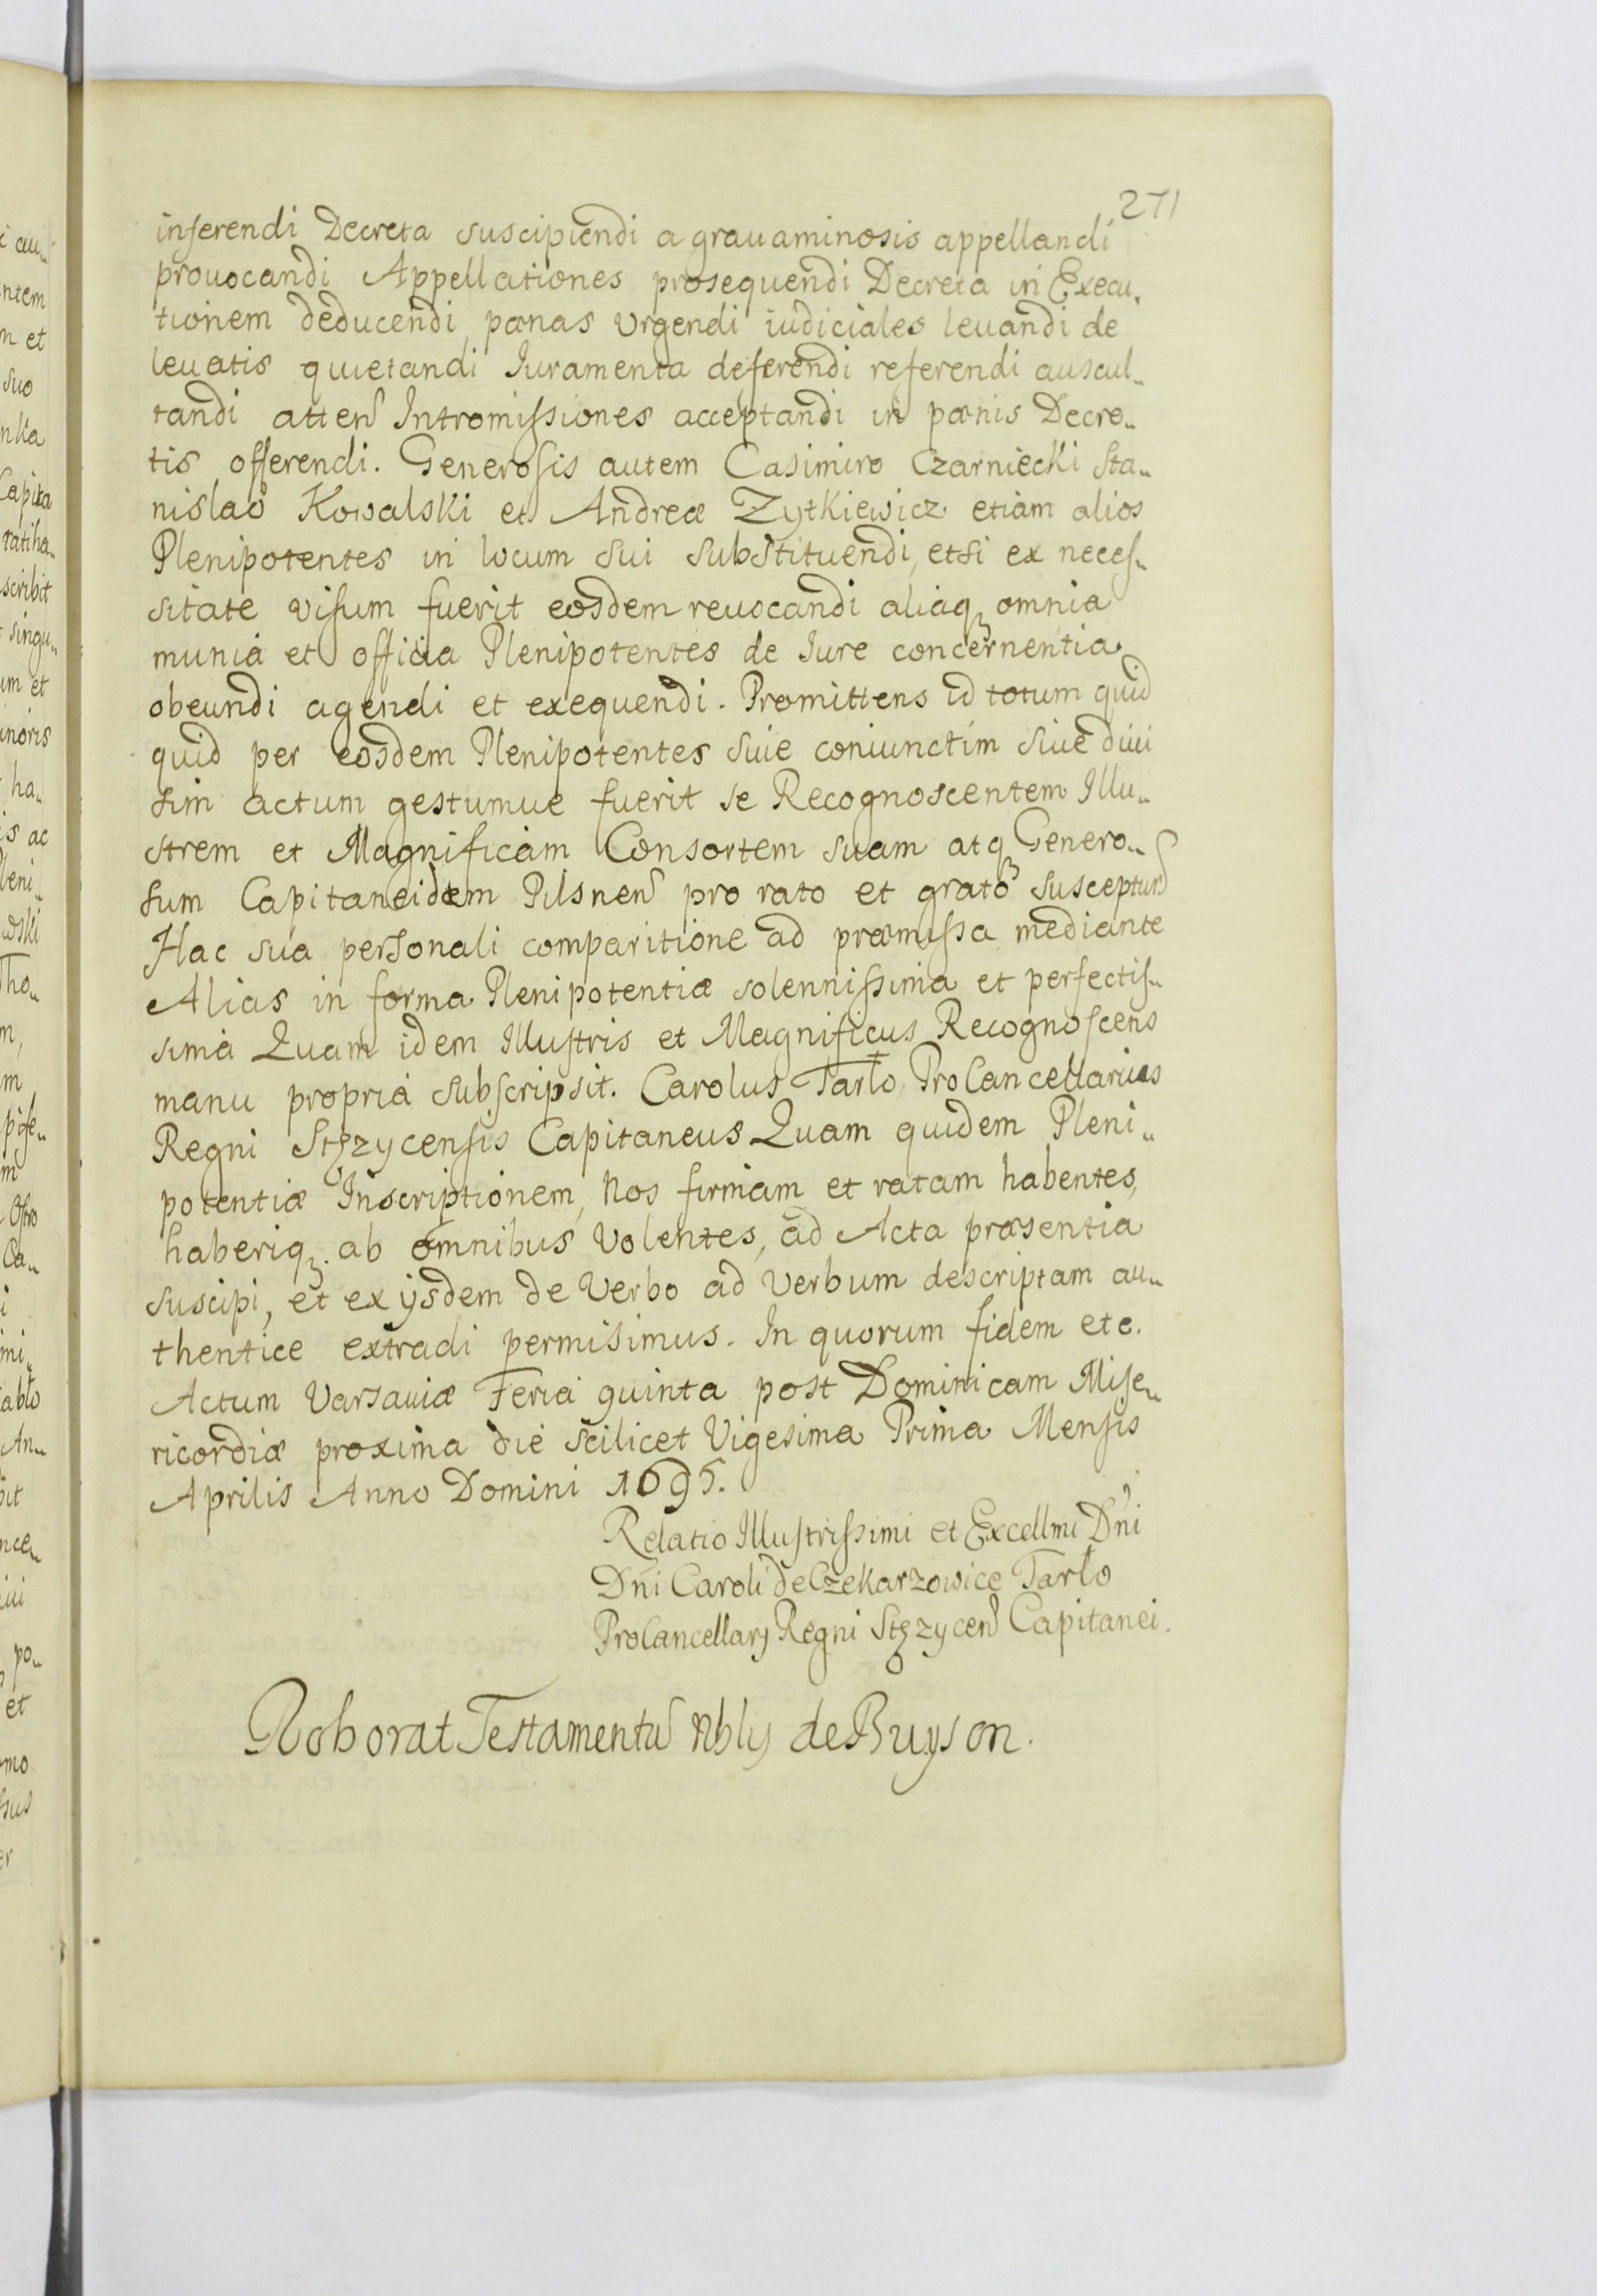 271
inferendi Decreta suscipiendi a grauaminosis appellandi
prouocandi Appellationes prosequendi Decreta in Execu„
tionem deducendi pænas Vrgendi iudiciales leuandi de
leuatis quietandi Iuramenta deferendi referendi auscul„
tandi atten Intromissiones acceptandi in pænis Decre„
tis offerendi. Generosis autem Casimiro Czarniecki Sta„
nislao Kowalski et Andreæ Zytkiewicz etiam alios
Plenipotentes in locum sui substituendi, etsi ex neces„
sitate visum fuerit eosdem reuocandi aliaq₃ omnia
munia et officia Plenipotentes de Iure concernentia
obeundi agendi et exequendi. Promittens id totum quid
quid per eosdem Plenipotentes siue coniunctim siue diui
sim actum gestumue fuerit se Recognoscentem Illu„
strem et Magnificam Consortem suam atq₃ Genero„
sum Capitaneidem Pilsnen pro rato et grato suscepturos
Hac sua personali comparitione ad præmissa mediante
Alias in forma Plenipotentiæ solennissima et perfectis„
sima Quam idem Illustris et Magnificus Recognoscens
manu propria subscripsit. Carolus Tarło ProCancellarius
Regni Stęzycensis Capitaneus Quam quidem Pleni„
potentiæ Inscriptionem, Nos firmam et ratam habentes,
haberiq₃. ab omnibus Volentes, ad Acta præsentia
suscipi, et ex ijsdem de Verbo ad Verbum descriptam au„
thentice extradi permisimus. In quorum fidem etc.
Actum Varsauiæ Feria quinta post Dominicam Mise„
ricordiæ proxima die scilicet Vigesima Prima Mensis
Aprilis Anno Domini 1695.
Relatio Illustrissimi et Excellmi Dni
Dni Caroli de Czekarzowice Tarło
ProCancellarij Regni Stęzycen Capitanei.
Roborat Testamentu Nblis de Buyson.